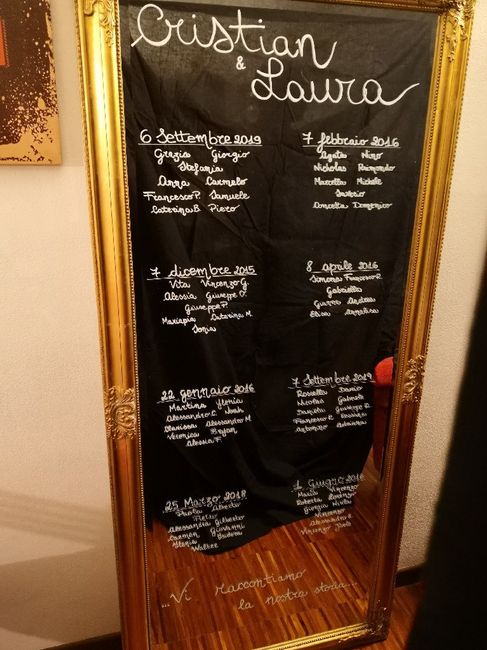 Cristian
&
Laura
6 Settembre 2019
Grazia Giorgio
Stefania
Anna Carmelo
Francesco P. Samuele
Caterina B. Piero
7 febbraio 2016
Agata Nino
Nicholas Raimondo
Marcella Michele
Saverio
Concetta Domenico
7 dicembre 2015
Vita Vincenzo G.
Alessia Giuseppe O.
Giuseppe P.
Mariapia Caterina M.
Sonia
8 aprile 2016
Simona Francesco R.
Gabriella
Andrea
Elisa Annalisa
22 gennaio 2016
Martina Ylenia
Alessandro C. Noah
Clarissa Alessandro M.
Veronica Bryan
Alessia F.
7 Settembre 2019
Rossella Dario
Nicolas Gabriele
Daniela Giuseppe R.
Francesco
Antonio
25 Marzo 2018
Paola Alberto
Piero
Alessandra Gilberto
Carmen Giovanni
Ylenia
Walter
1 Giugno 2018
Maria Vincenzo
Roberta Lorenzo
Giorgia
Vincenzo
Alessandro
Vincenzo
...Vi raccontiamo
la nostra storia...